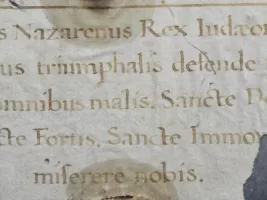 s Nazarenus Rex Iudæor
us triumphalis defende
omnibus malis. Sancte De
cte Fortis, Sancte Immor
miserere nobis.